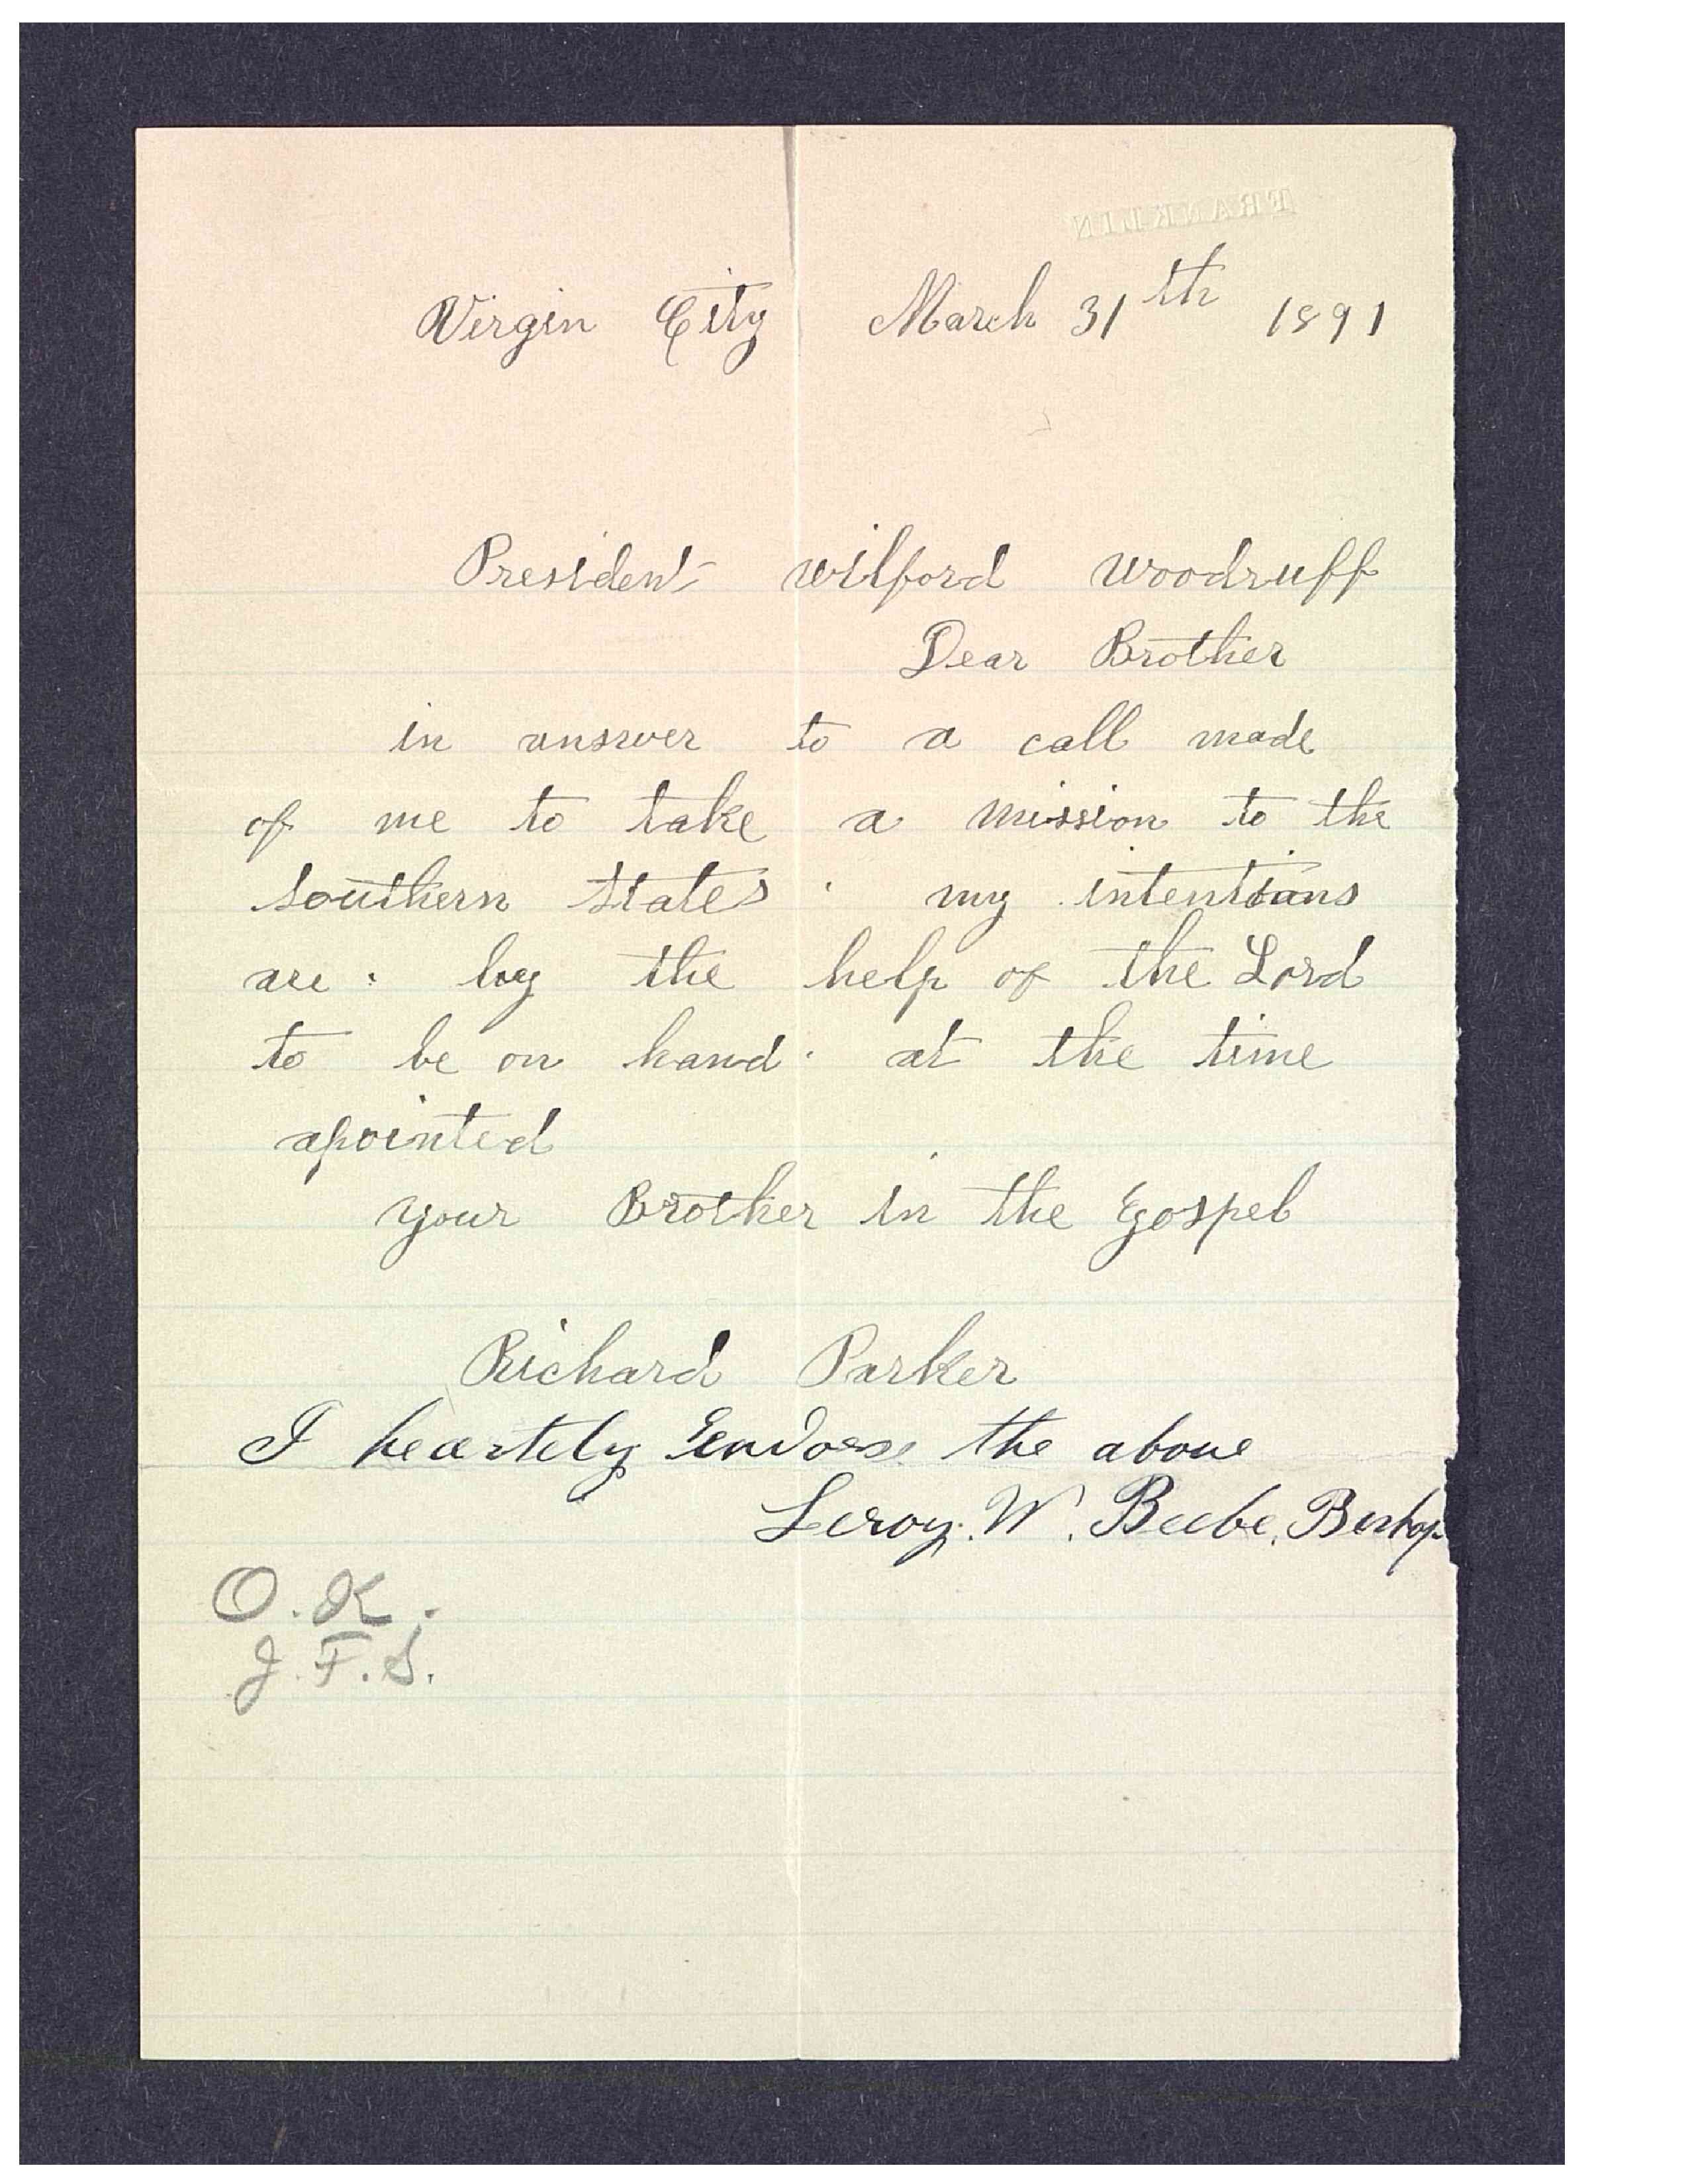 FRANKLIN
Virgin City March 31th 1891
President Wilford Woodruff
Dear Brother
in answer to a call made
of me to take a mission to the
southern states . my intentions
are . by the help of the Lord
to be on hand . at the time
apointed
your Brother in the Gospel
Richard Parker
I heartely Endorse the above
Leroy. W. Beebe, Bishop
O.K.
J.F.S.